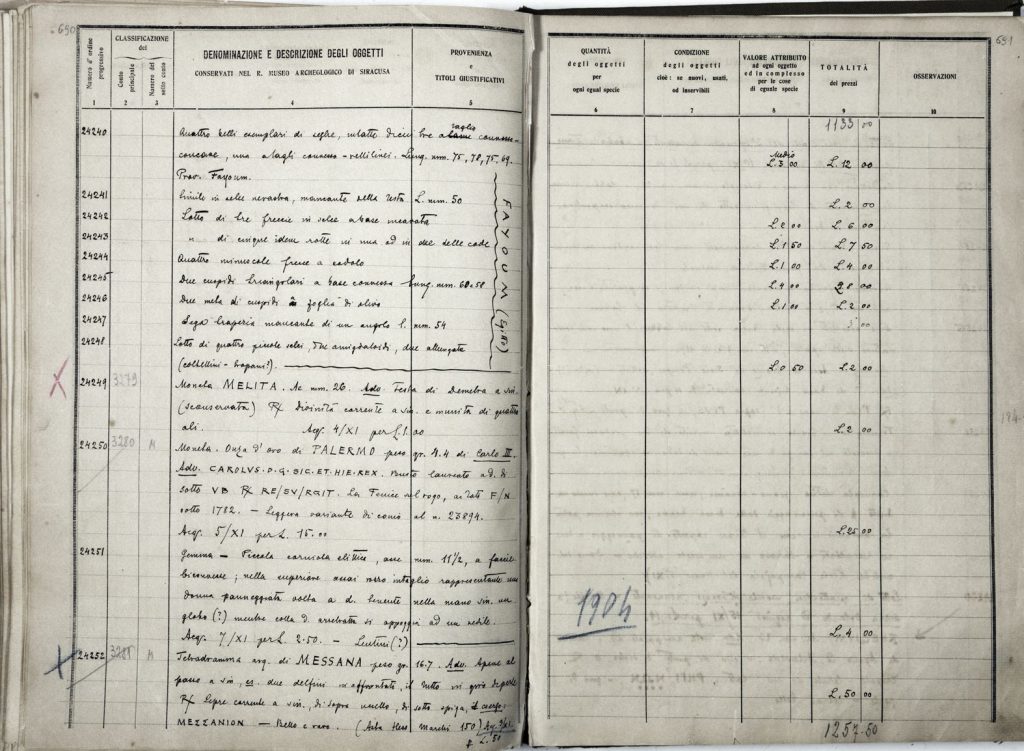 690
Numero d'ordine progressivo
CLASSIFICAZIONE del
Conto principale
Numero del sotto conto
DENOMINAZIONE E DESCRIZIONE DEGLI OGGETTI
CONSERVATI NEL R. MUSEO ARCHEOLOGICO DI SIRACUSA
PROVENIENZA
e
TITOLI GIUSTIFICATIVI
1 2 3 4 5
24240 Quattro belli esemplari di seghe, intatte dicui tre a taglio connesso-
concavo, una a tagli connesso-rettilinei. Lung. mm. 75, 78, 75, 69.
Prov. Fayoum.
24241 Simile in selce nerastra, mancante della testa L. mm. 50
24242 Lotto di tre freccie in selce a base incavata
24243 " di cinque idem rotte in una ad in due delle code
24244 Quattro minuscole frecce a codolo
24245 Due cuspidi triangolari a base connessa lung. mm. 60 e 58
24246 Due metà di cuspidi a foglia di olivo
24247 Sega trapezia mancante di un angolo l. mm. 54
24248 Lotto di quattro piccole selci, due amigdaloidi, due allungate
(coltellini-trapani?).
FAYOUM (Egitto)
24249 3279 Moneta MELITA. Ae mm. 26. Adv. Testa di Demetra a sin.
(sconservata) R/ Divinità corrente a sin. e munita di quattro
ali. Acq. 4/XI per L. 1.00
24250 3280 M Moneta. Onza d'oro di PALERMO peso gr. 4.4 di Carlo III.
Adv. CAROLVS.D.G.SIC.ET.HIE.REX. Busto laureato a d. di
sotto VB R/ RE/SV/RGIT. La Fenice sul rogo, ai lati F/N
sotto 1782. - Leggera variante di conio al n. 23894.
Acq. 5/XI per L. 15.00
24251 Gemma - Piccola corniola ellittica, asse mm. 11 1/2, a faccie
biconvesse; nella superiore assai rozzo intaglio rappresentante una
donna panneggiata volta a d. tenente nella mano sin. un
globo (?) mentre colla d. arretrata si appoggia ad un sedile.
Acq. 7/XI per L. 2.50. - Lentini (?)
24252 3281 M Tetradramma arg. di MESSANA peso gr. 16.7. Adv. Apene al
passo a sin, es. due delfini affrontati, il tutto in giro di perle
R/ Lepre corrente a sin, di sopra uccello, di sotto spiga, d'intorno:
MESSANION - Bello e raro. (Asta Hess Marchi 150)
L. 50
691
QUANTITÀ
degli oggetti
per
ogni egual specie
CONDIZIONE
degli oggetti
cioè: se nuovi, usati,
od inservibili
VALORE ATTRIBUITO
ad ogni oggetto
ed in complesso
per le cose
di eguale specie
TOTALITÀ
dei prezzi
OSSERVAZIONI
6 7 8 9 10
1133 00
Medio
L. 3 00 L. 12 00
L. 2 00
L. 2 00 L. 6 00
L. 1 50 L. 7 50
L. 1 00 L. 4 00
L. 4 00 L. 8 00
L. 1 00 L. 2 00
00
L. 0 50 L. 2 00
L. 2 00
L. 25 00
1904
L. 4 00
L. 50 00
1257.50